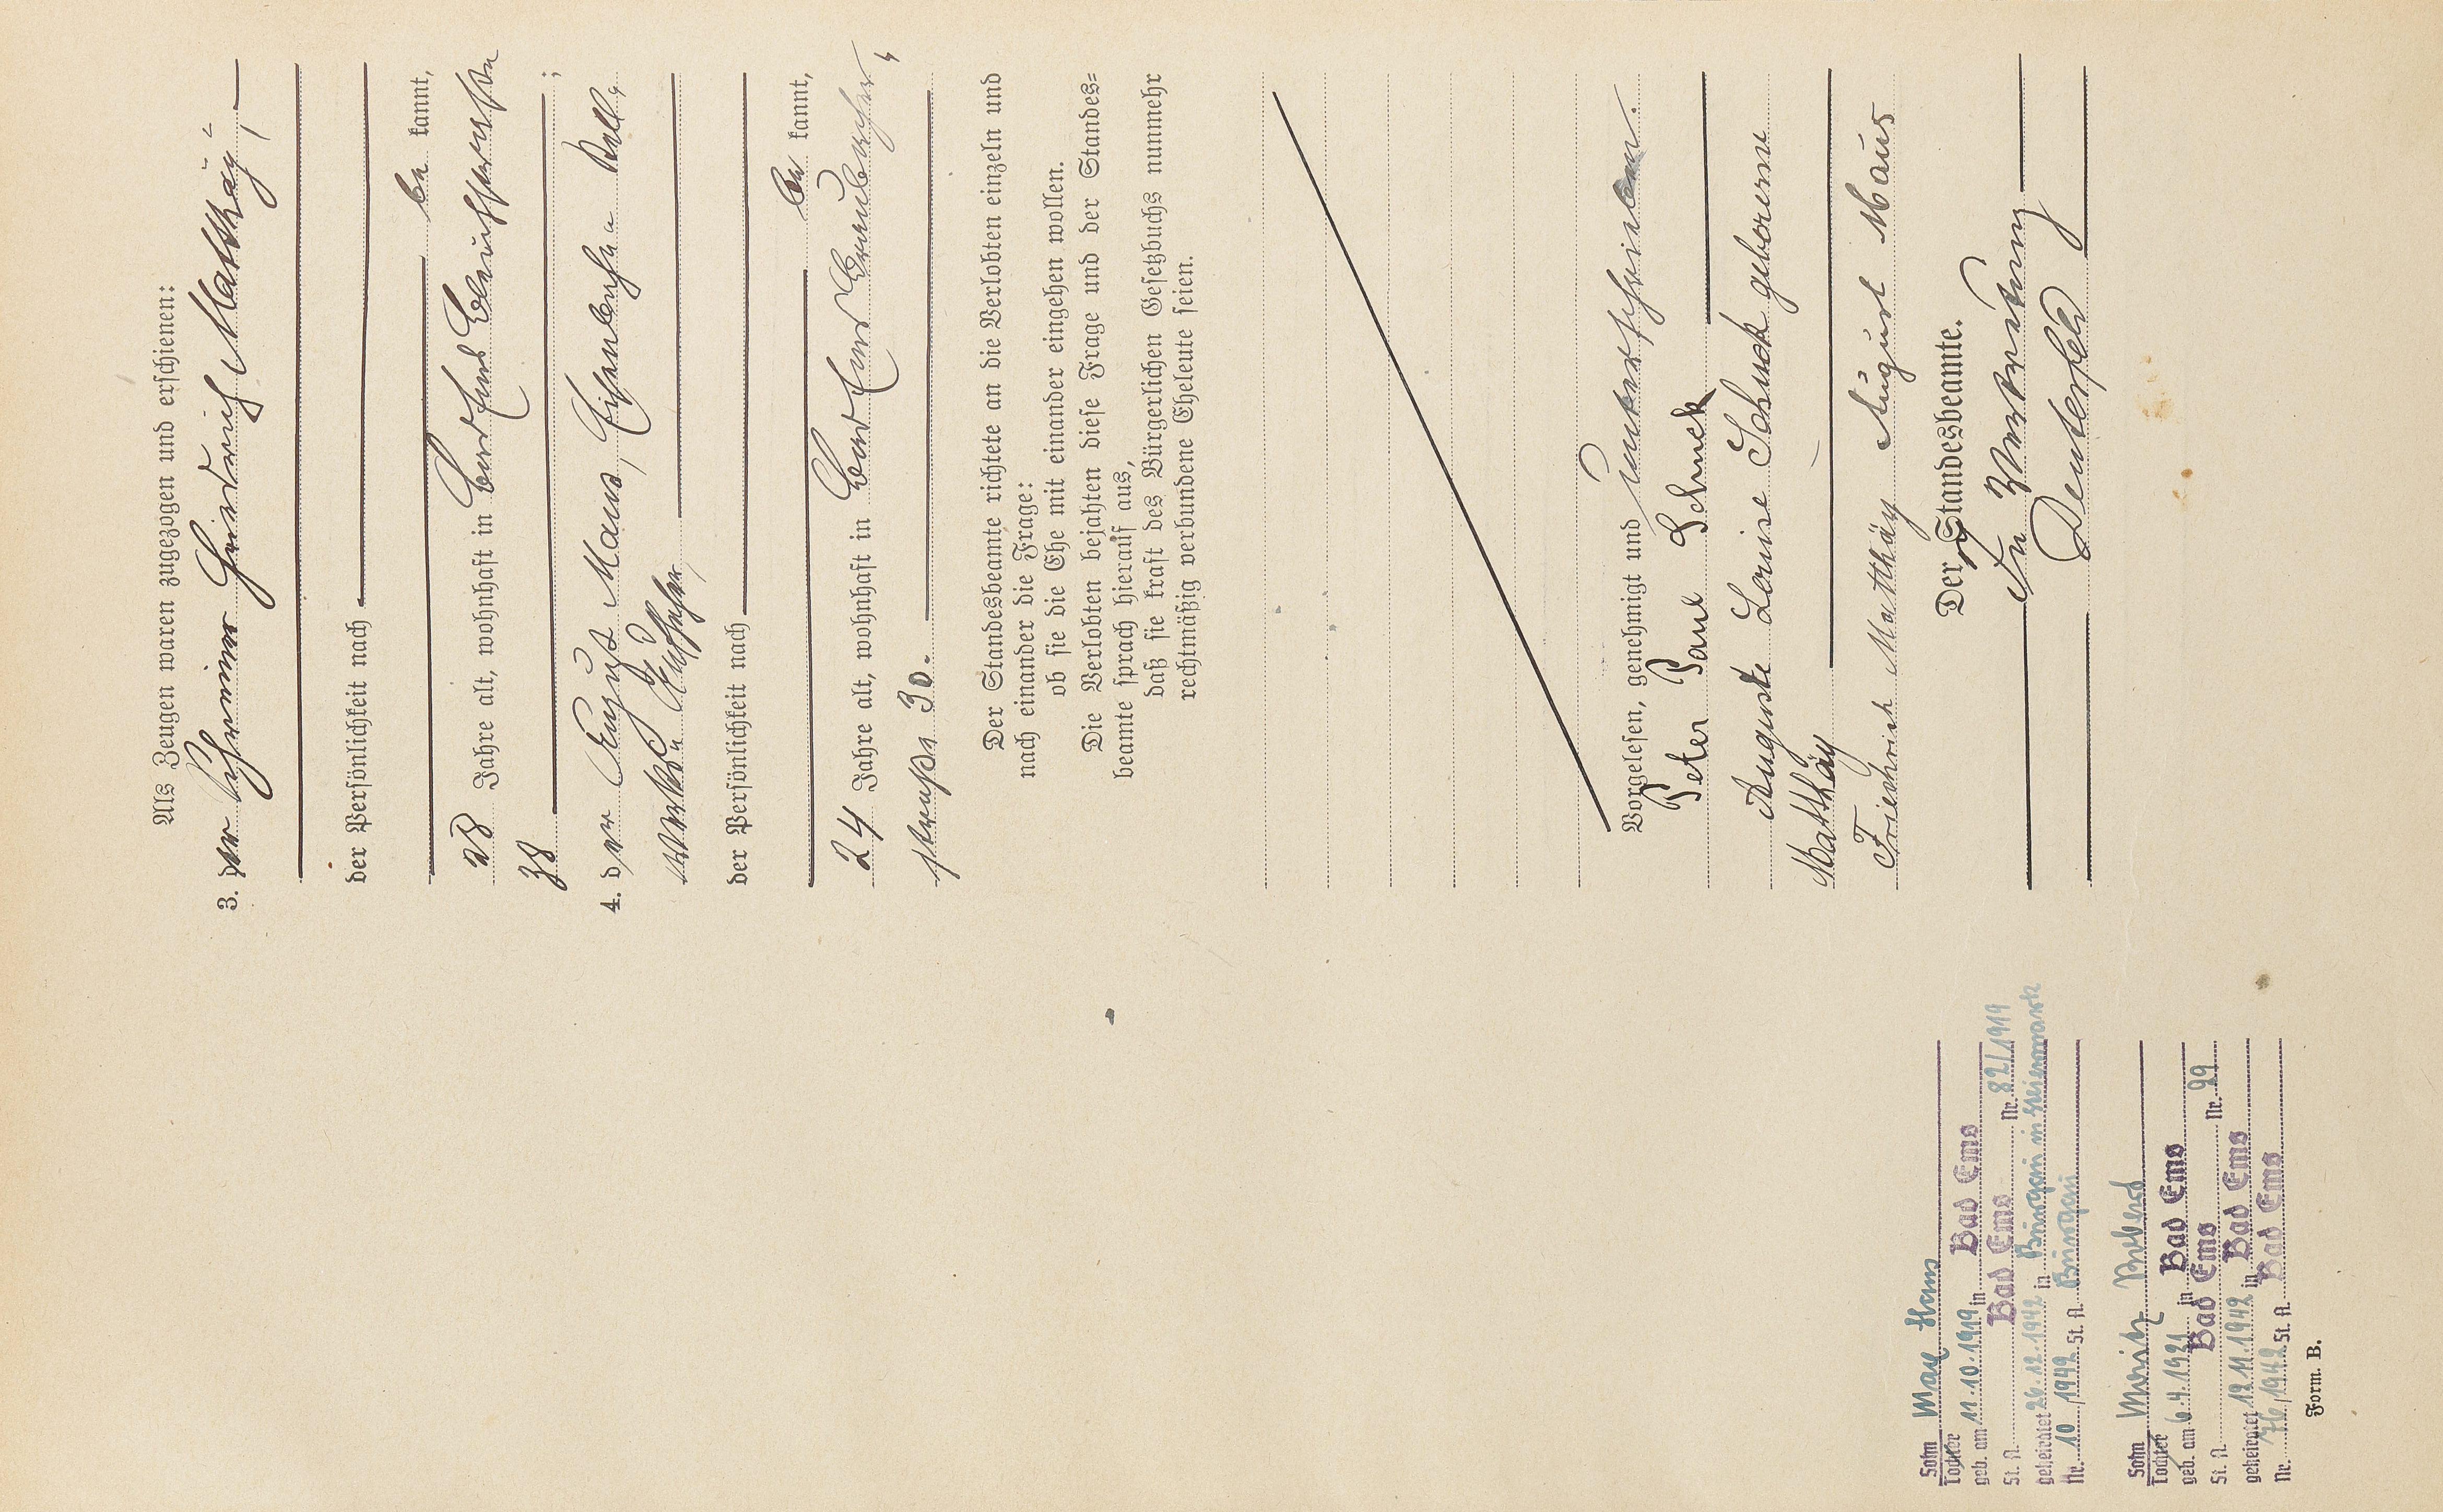 Als Zeugen waren zugezogen und erschienen:
3. der Schreiner Friedrich Matthäy,
der Persönlichkeit nach
be kannt,
28 Jahre alt, wohnhaft in Bad Ems
38 ;
4. der August Maus, Eisenbahn
der Persönlichkeit nach
be kannt,
24 Jahre alt, wohnhaft in Bad Ems
straße 30.
Der Standesbeamte richtete an die Verlobten einzeln und
nach einander die Frage:
ob sie die Ehe mit einander eingehen wollen.
Die Verlobten bejahten diese Frage und der Standes=
beamte sprach hierauf aus,
daß sie kraft des Bürgerlichen Gesetzbuchs nunmehr
rechtmäßig verbundene Eheleute seien.
Vorgelesen, genehmigt und unterschrieben.
Peter Paul Schuck
Auguste Louise Schuck geborene
Matthäy
Friedrich Matthäy August Maus
Der Standesbeamte.
In Vertretung
Sohn Max Hans
Tochter
geb. am 11.10.1919 in Bad Ems
St. A. Bad Ems Nr. 82/1919
geheiratet 26.12.1942 in Burgau in Steiermark
Nr. 10/1942 St. A. Burgau
Sohn Moritz
Tochter
geb. am 6.4.1921 in Bad Ems
St. A. Bad Ems Nr. 29
geheiratet 12.11.1942 in Bad Ems
Nr. 76/1942 St. A. Bad Ems
Form. B.